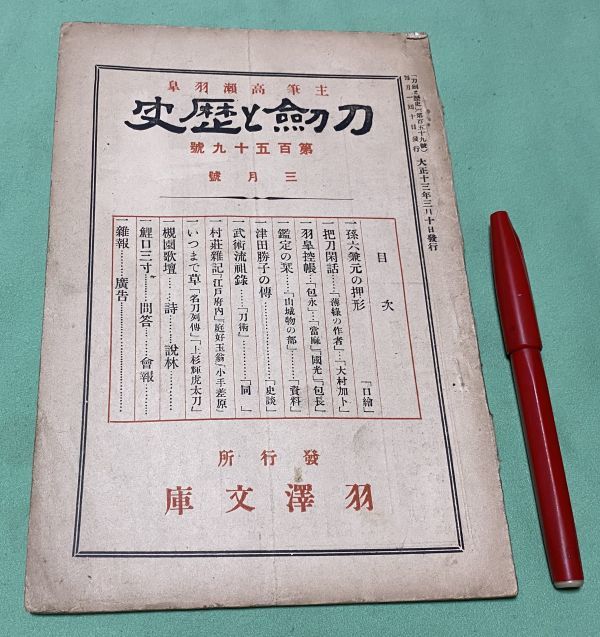 『刀劍と歷史』（第百五十九號）
每月一回十日發行
大正十三年三月十日發行
主筆高瀨羽皐
刀劍と歷史
第百五十九號
三月號
目次
一孫六兼元の押形「口繪」
一把刀閑話…「薄綠の作者」…「大村加ト」
一羽皐控帳…「包永」…「當麻」「國光」「包長」
一鑑定の栞…「山城物の部」…「資料」
一津田勝子の傳…「史談」
一武術流祖錄…「刀術」…「同」
一村莊雜記「江戶府內」「庭好玉翁」「小手差原」
一いつまで草「名刀列傳」「上杉輝虎太刀」
一槻園歌壇……詩……說林
一鯉口三寸……問答……會報
一雜報……廣告
發行所
羽澤文庫